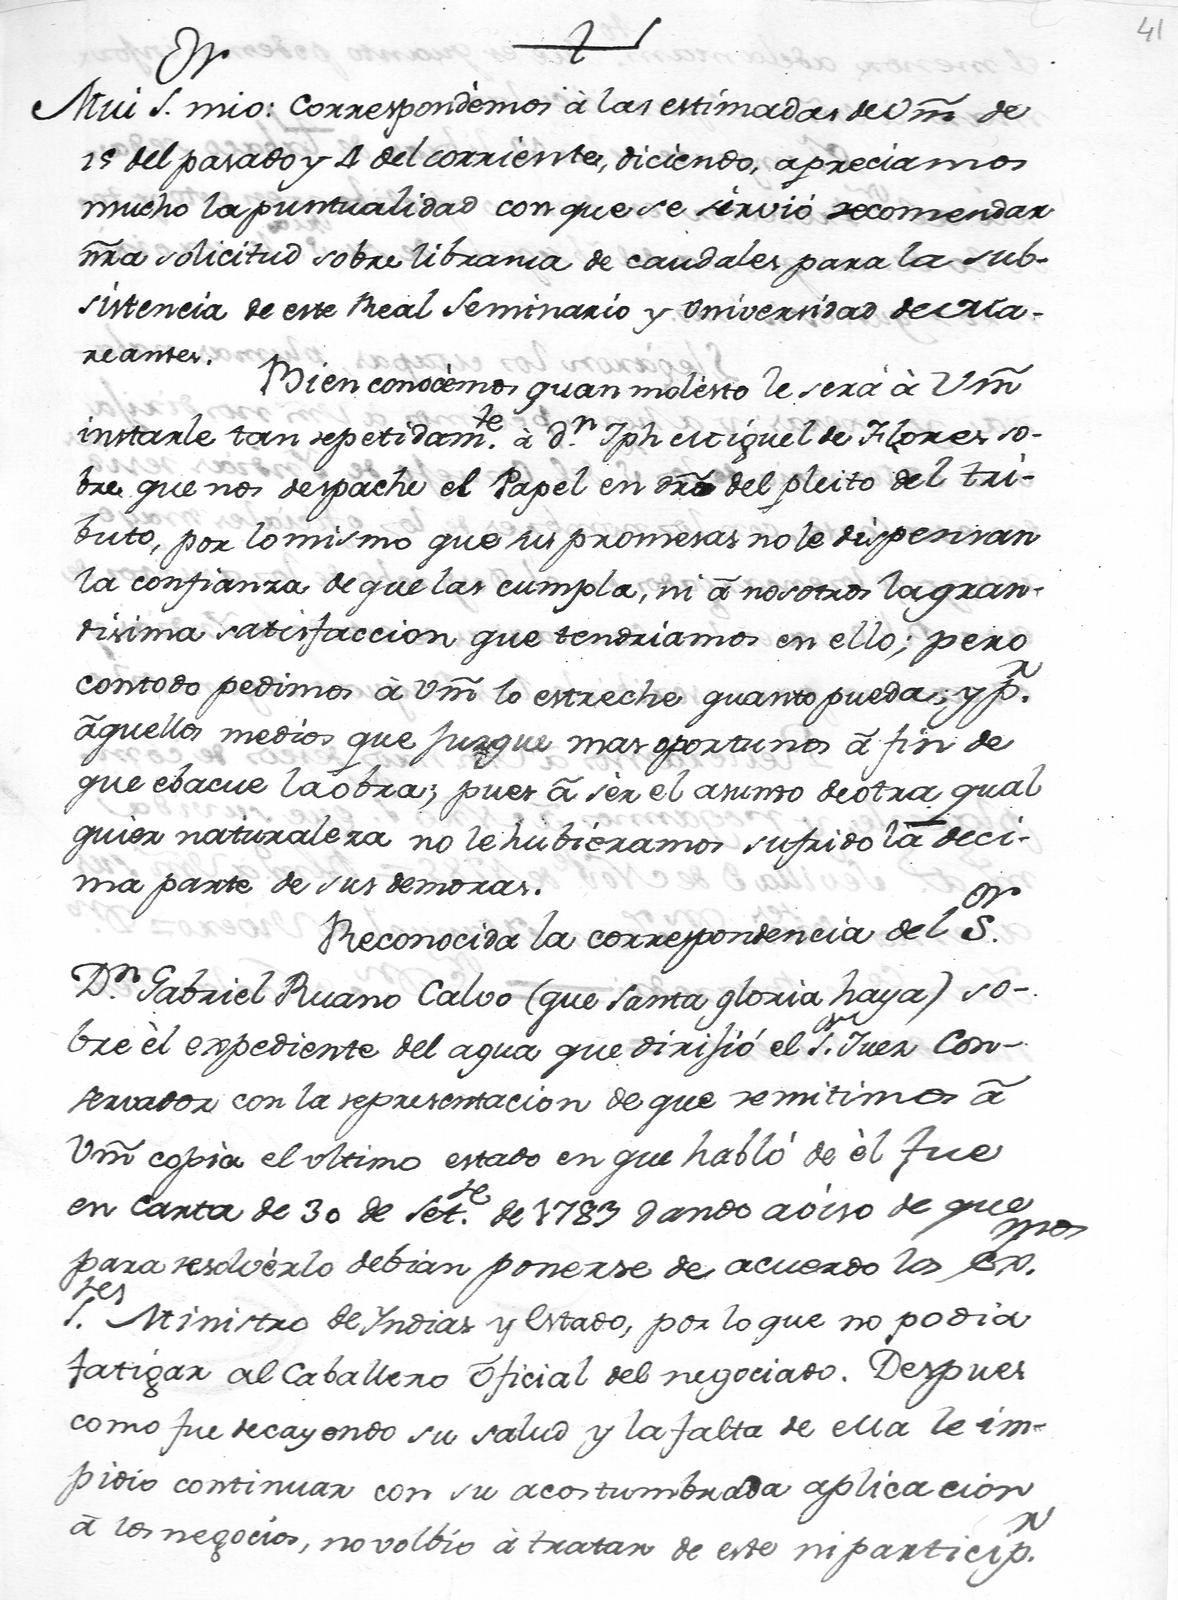 41
Mui S.or mio: Correspondèmos à las estimadas de Vm̃ de
15 del pasado y 4 del corriente, diciendo, apreciamos
mucho la puntualidad con que se sirvió recomendar
nr̃a solicitud sobre libranza de caudales para la sub-
sistencia de este Real Seminario y Universidad de Ma-
reantes.
Bien conocèmos quan molèsto le será à Vm̃
instarle tan repetidam.te à d.n Jph Miguel de Flores so-
bre que nos despache el Papel en dr̃o del pleito del tri-
buto, por lo mismo que sus promesas no le dispensan
la confianza de que las cumpla, ni ã nosotros la gran-
disima satisfaccion que tendriamos en ello; pero
contodo pedimos à Vm̃ lo estreche quanto pueda; y p.r
ãquellos medios que juzgue mas oportunos ã fin de
que ebacue la õbra; pues ã sèr el asunto de otra qual
quier naturaleza no le hubièramos sufrido la deci-
ma parte de sus demoras.
Reconocida la correspondencia del S.or
D.n Gabriel Ruano Calvo (que santa gloria haya) so-
bre èl expediente del agua que dirijió el S.or Juez Con-
servador con la representacion de que remitimos ã
Vm̃ copia el ultimo estado en que habló de èl fue
en Carta de 30 de Set.re de 1783 dando aviso de que
para resolvèrlo debian ponerse de acuerdo los Ex.mos
S.res Ministro de Indias y Estado, por lo que no podia
fatigar al Caballero õficial del negociado. Despues
como fue decayendo su salud y la falta de ella le im-
pidio continuar con su acostumbrada aplicacion
ã los negocios, no volbio à tratar de este ni particip.r